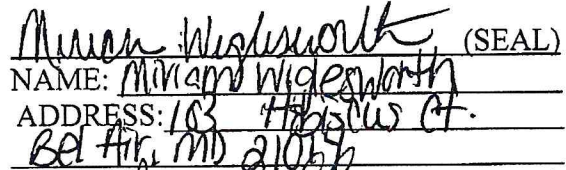 Miriam Wiglesworth (SEAL)
NAME: Miriam Wiglesworth
ADDRESS: 103 Hibiscus Ct.
Bel Air, MD